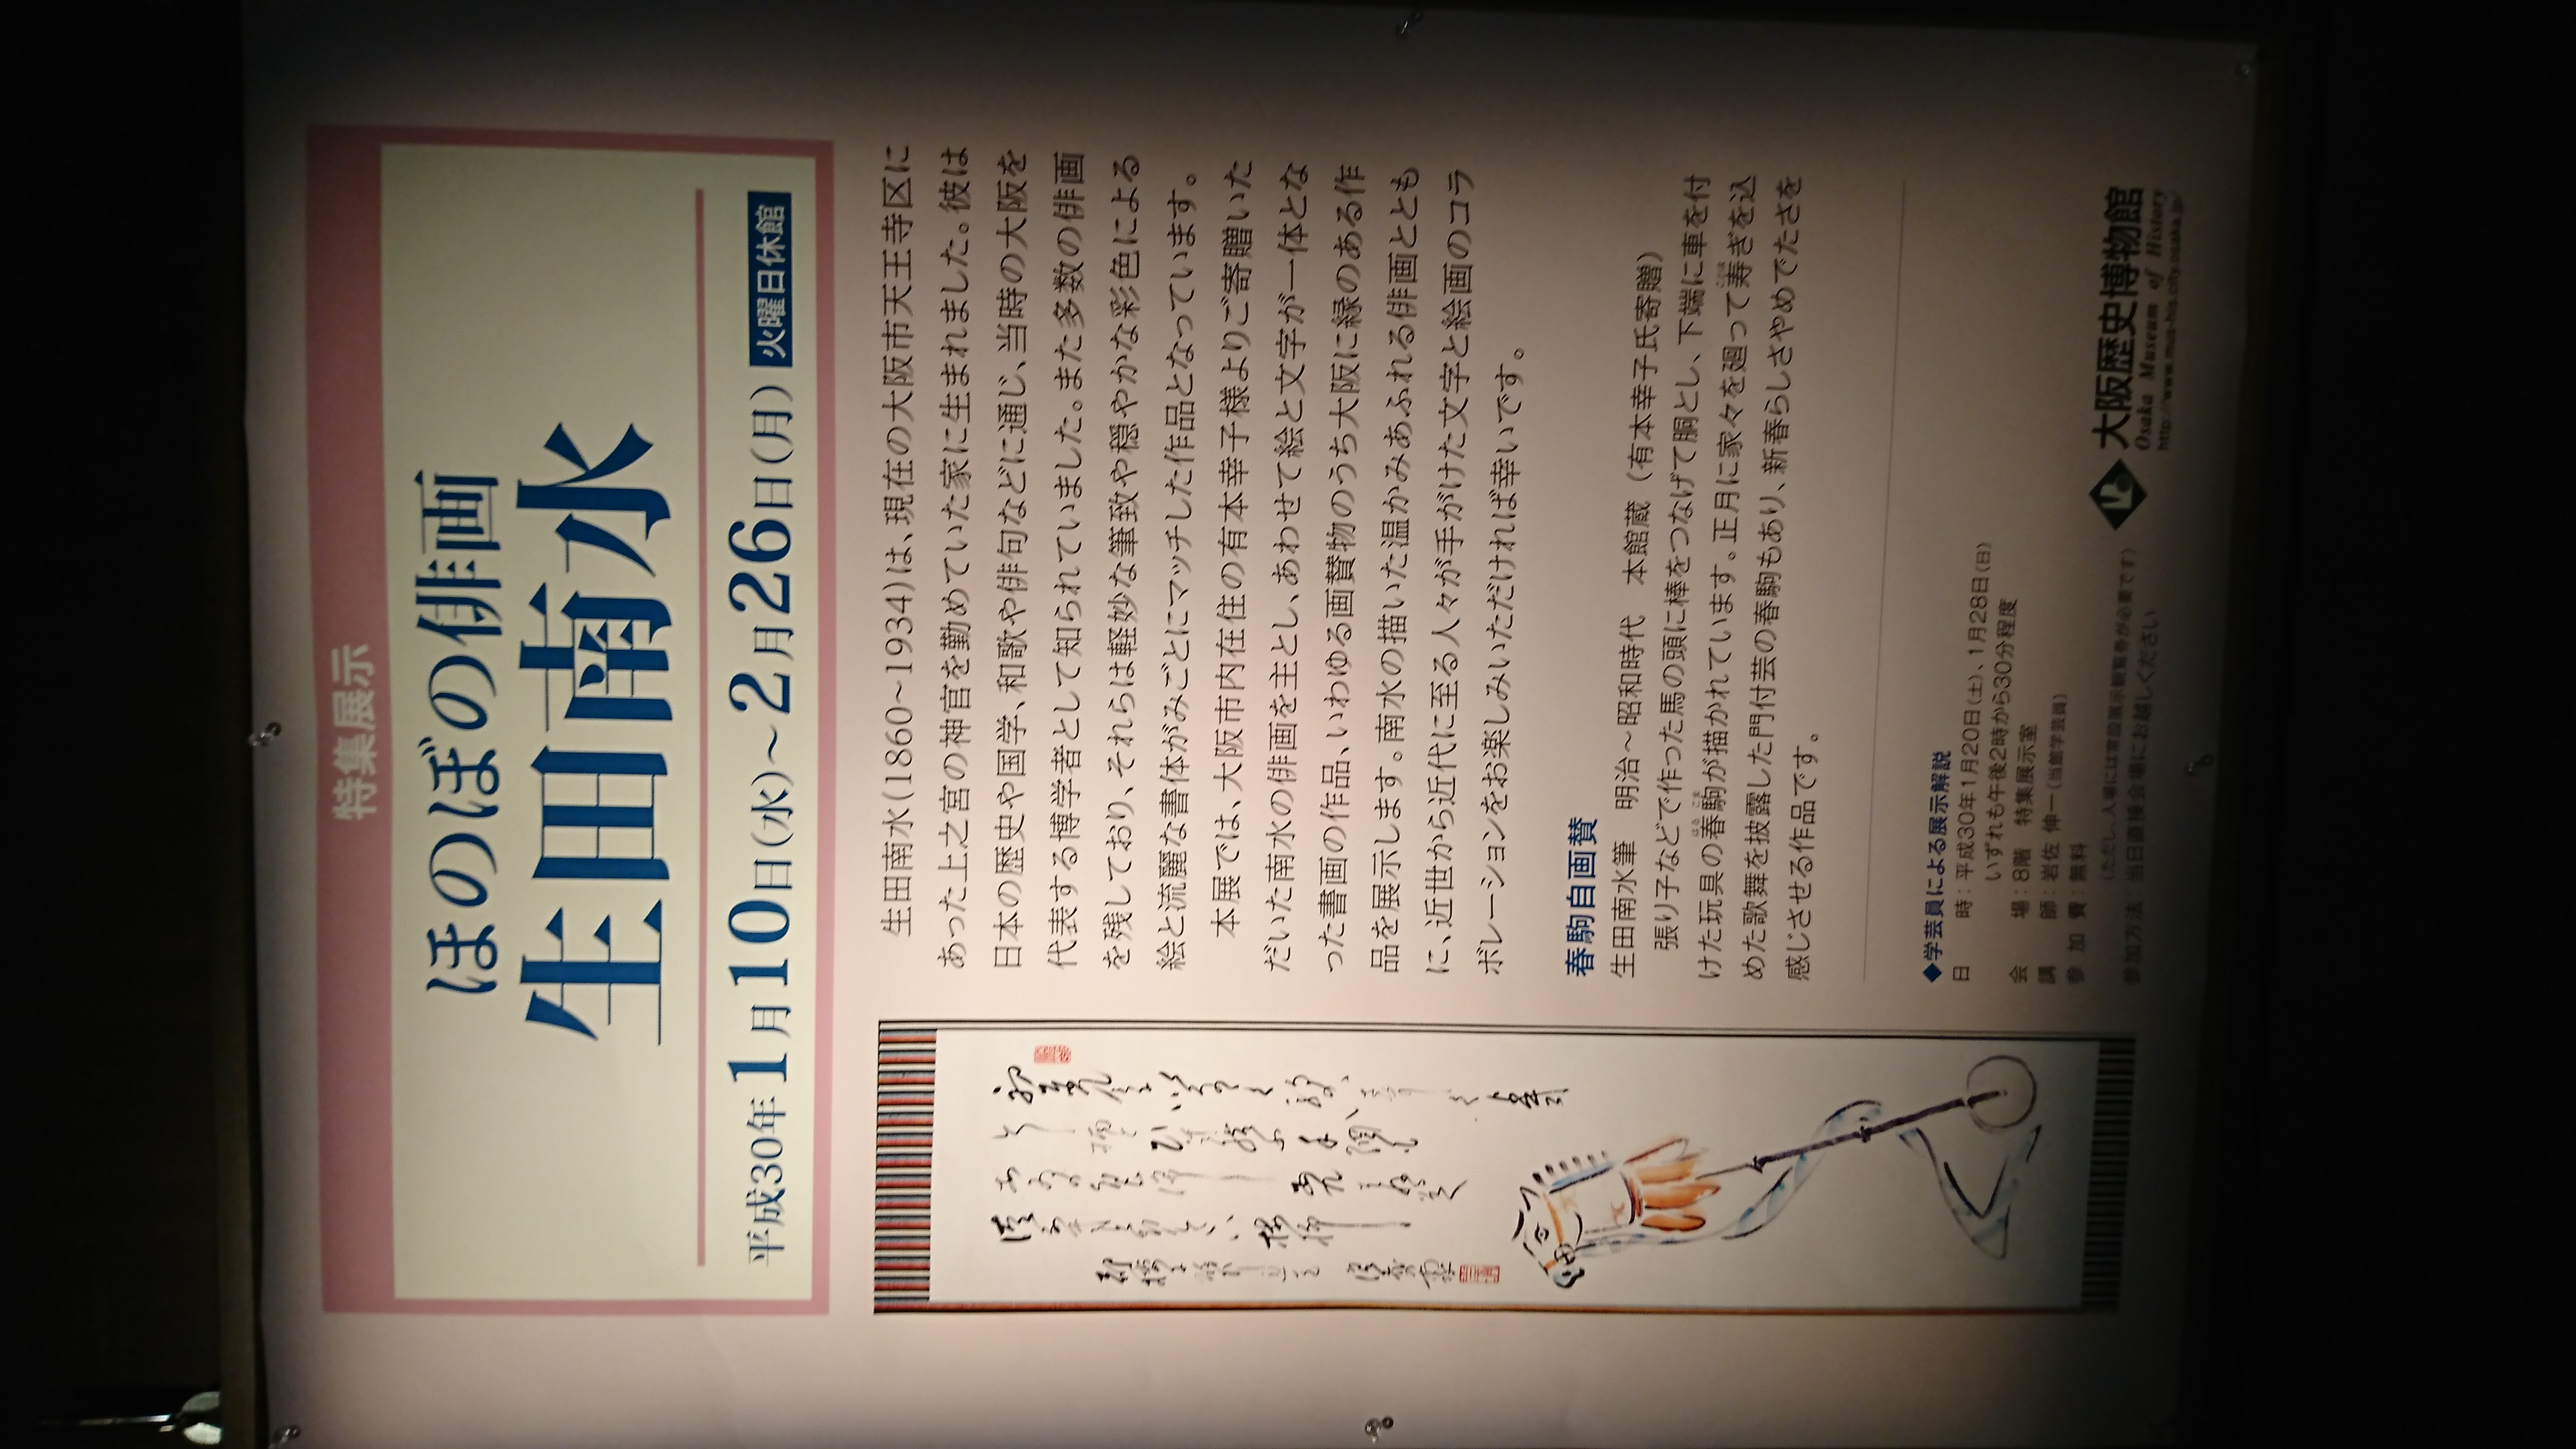 特集展示
ほのぼの俳画
生田南水
平成30年1月10日(水)～2月26日(月) 火曜日休館
生田南水(1860～1934)は、現在の大阪市天王寺区に
あった上之宮の神官を勤めていた家に生まれました。彼は
日本の歴史や国学、和歌や俳句などに通じ、当時の大阪を
代表する博学者として知られていました。また多数の俳画
を残しており、それらは軽妙な筆致や穏やかな彩色による
絵と流麗な書体がみごとにマッチした作品となっています。
本展では、大阪市内在住の有本幸子様よりご寄贈いた
だいた南水の俳画を主とし、あわせて絵と文字が一体とな
った書画の作品、いわゆる画賛物のうち大阪に縁のある作
品を展示します。南水の描いた温かみあふれる俳画ととも
に、近世から近代に至る人々が手がけた文字と絵画のコラ
ボレーションをお楽しみいただければ幸いです。
春駒自画賛
生田南水筆 明治～昭和時代 本館蔵 (有本幸子氏寄贈)
張り子などで作った馬の頭に棒をつなげて胴とし、下端に車を付
けた玩具の春駒が描かれています。正月に家々を廻って寿ぎを込
めた歌舞を披露した門付芸の春駒もあり、新春らしさやめでたさを
感じさせる作品です。
◆学芸員による展示解説
日 時：平成30年1月20日(土)、1月28日(日)
いずれも午後2時から30分程度
会 場：8階 特集展示室
講 師：岩佐 伸一(当館学芸員)
参 加 費：無料
(ただし、入場には常設展示観覧券が必要です)
参加方法：当日直接会場にお越しください
大阪歴史博物館
Osaka Museum of History
http://www.mus-his.city.osaka.jp/